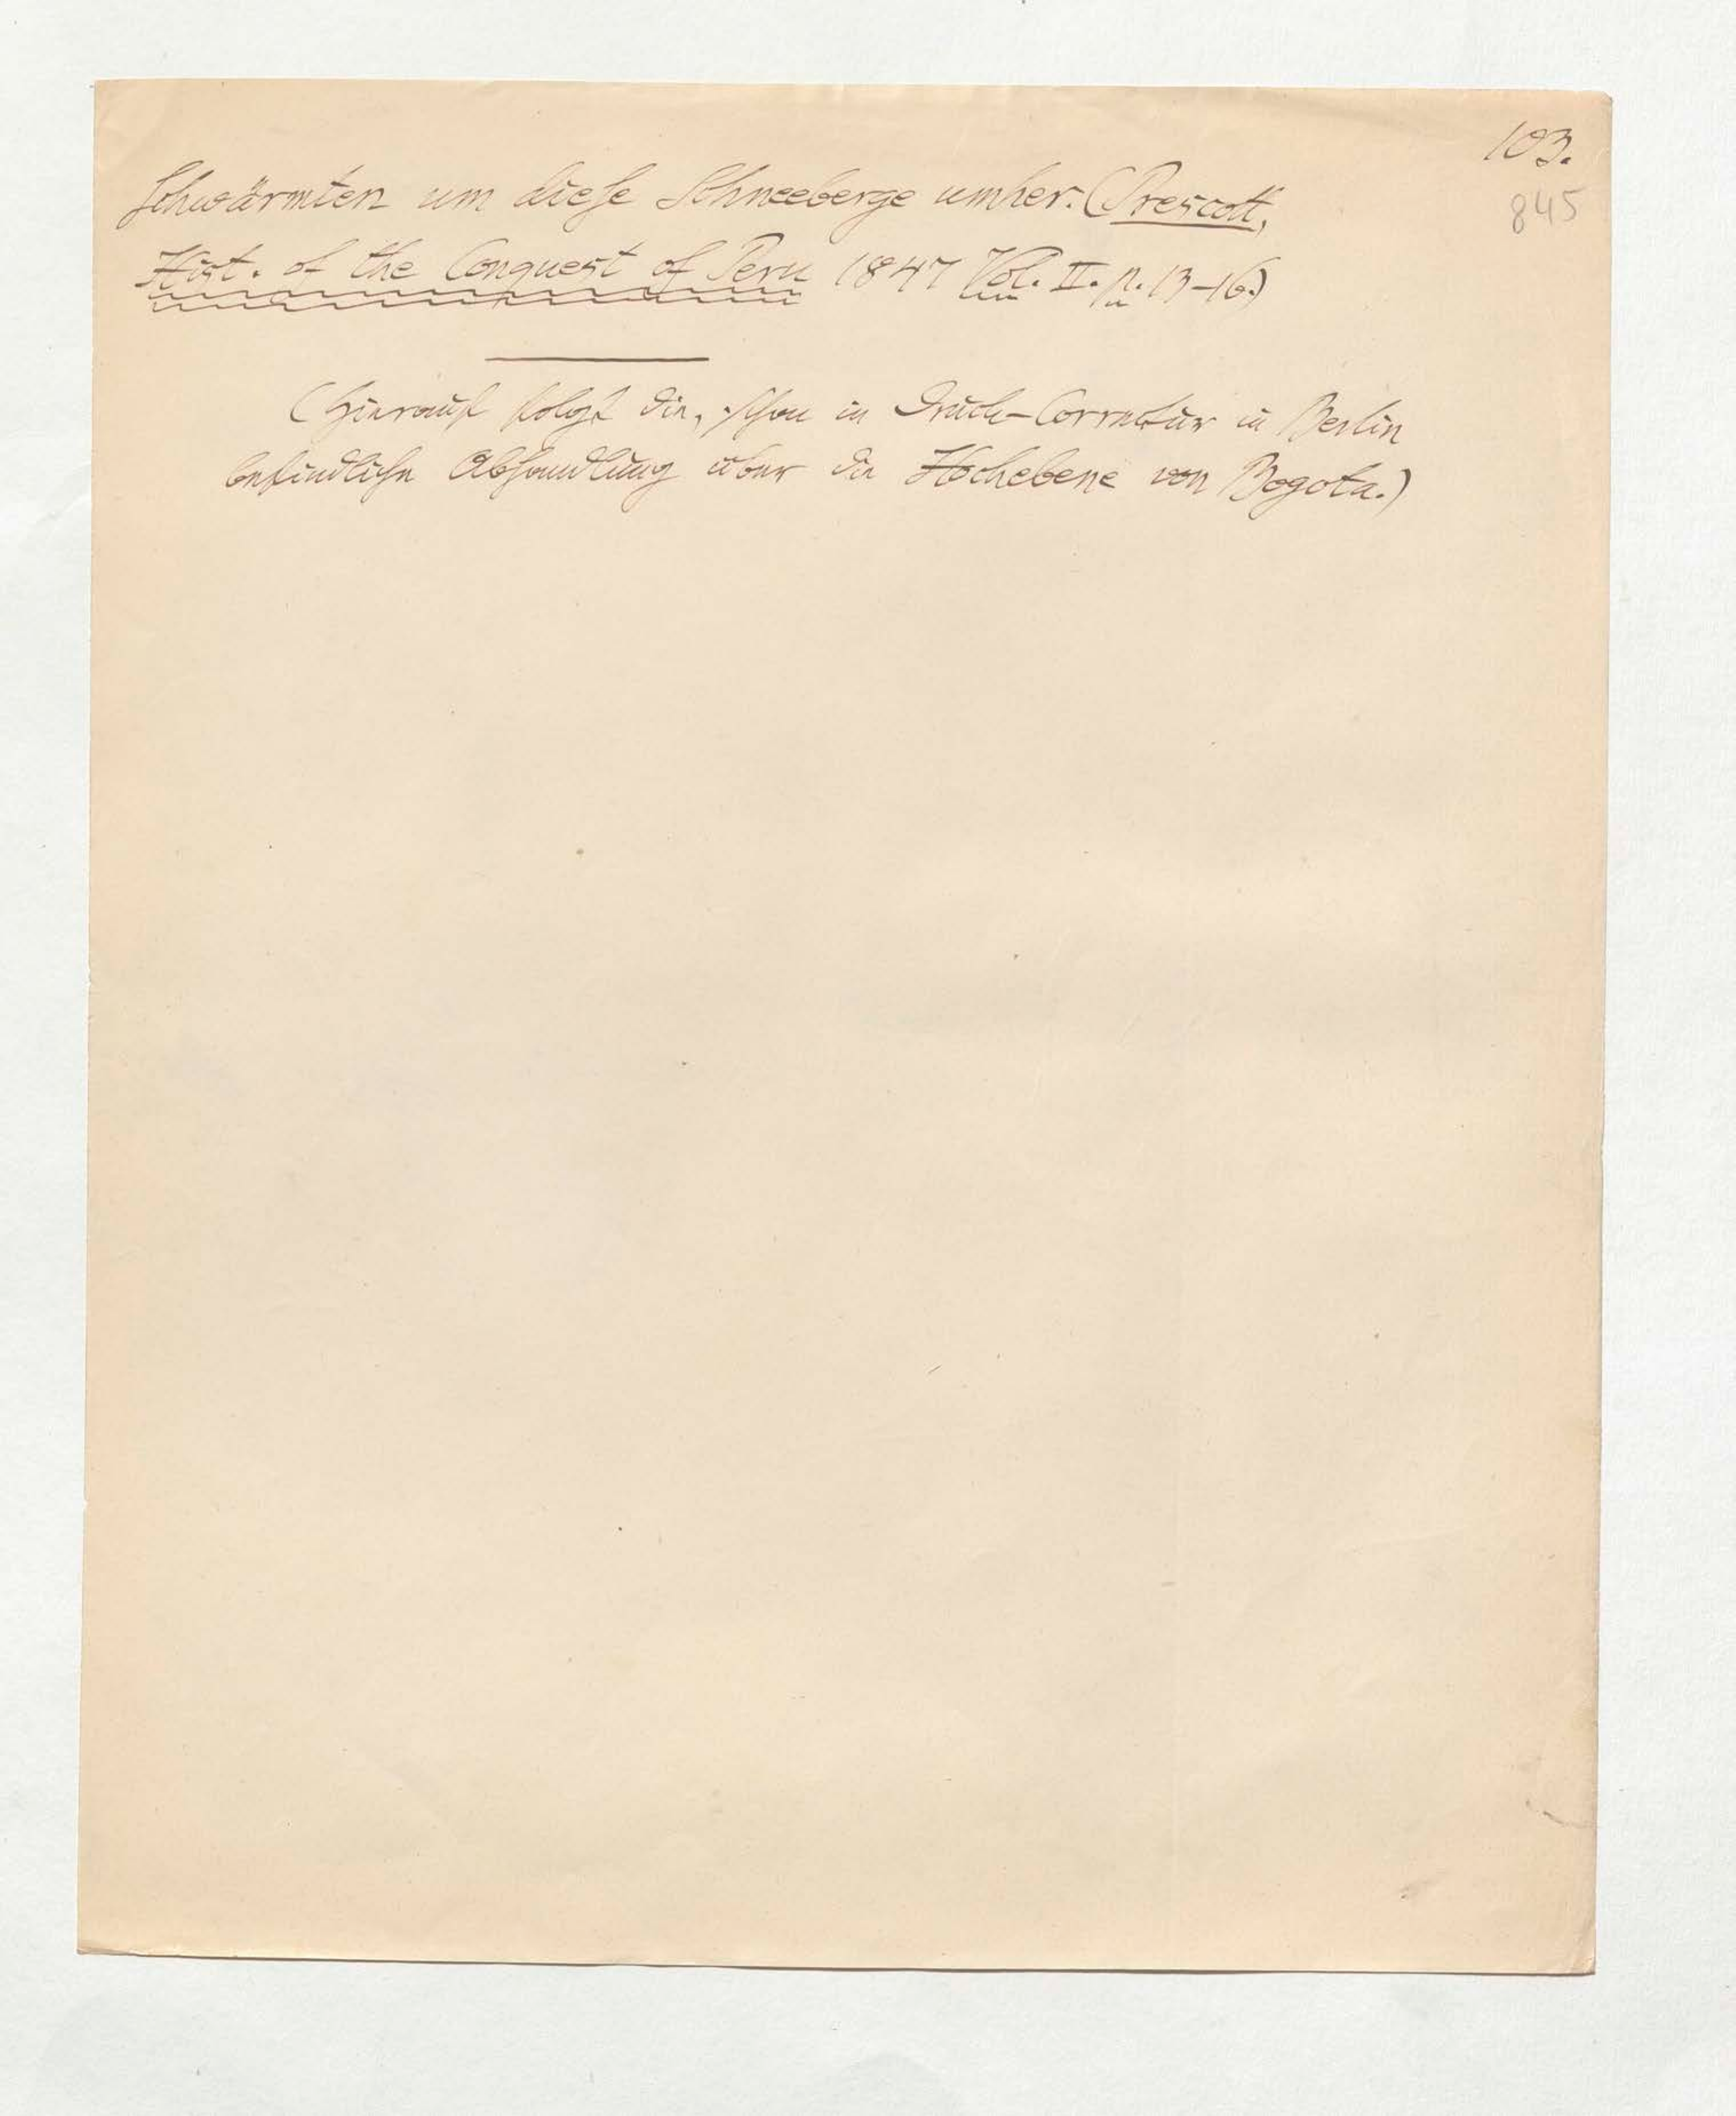 103.
845
schwärmten um diese Schneeberge umher. (Prescott,
Hist. of the Conquest of Peru 1847 Vol. II. p. 13–16.)
(Hierauf folgt die, schon in Druck-Correctur in Berlin
befindliche Abhandlung über die Hochebene von Bogota.)